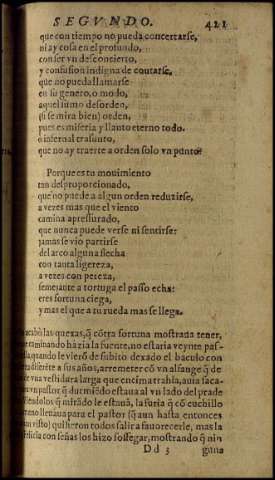 SEGVNDO. 421
que con tiempo no pueda concertarse,
ni ay cosa en el profundo,
con ser vn desconcierto,
y confusion indigna de contarse,
que no pueda llamarse
en su genero, o modo,
aquel sumo desorden,
(si se mira bien) orden,
pues es miseria y llanto eterno todo.
o infernal trasunto,
que no ay traerte a orden solo vn punto?
Porque es tu mouimiento
tan desproporcionado,
que no puede a algun orden reduzirse,
a vezes mas que el viento
camina apressurado,
que nunca puede verse ni sentirse:
jamas se vio partirse
del arco alguna flecha
con tanta ligereza,
a vezes con pereza,
semejante a tortuga el passo echa:
eres fortuna ciega,
y mas el que a tu rueda mas se llega.
acabò las quexas, q̃ cõtra fortuna mostraua tener,
caminando hàzia la fuente, no estaria veynte pas-
quando le vierõ de subito dexado el baculo con
a sus años, arremeter cõ vn alfange q̃ de
vna vestidura larga que encima trahîa, auia saca-
vn pastor q̃ durmiẽdo estaua al vn lado del prado
los q̃ mirãdo le estauã, la furia q̃ cõ cuchillo
lleuaua para el pastor (q̃ aun hasta entonces
visto) quisieron todos salir a fauorecerle, mas la
con señas los hizo sossegar, mostrando q̃ nin
Dd 3 guna